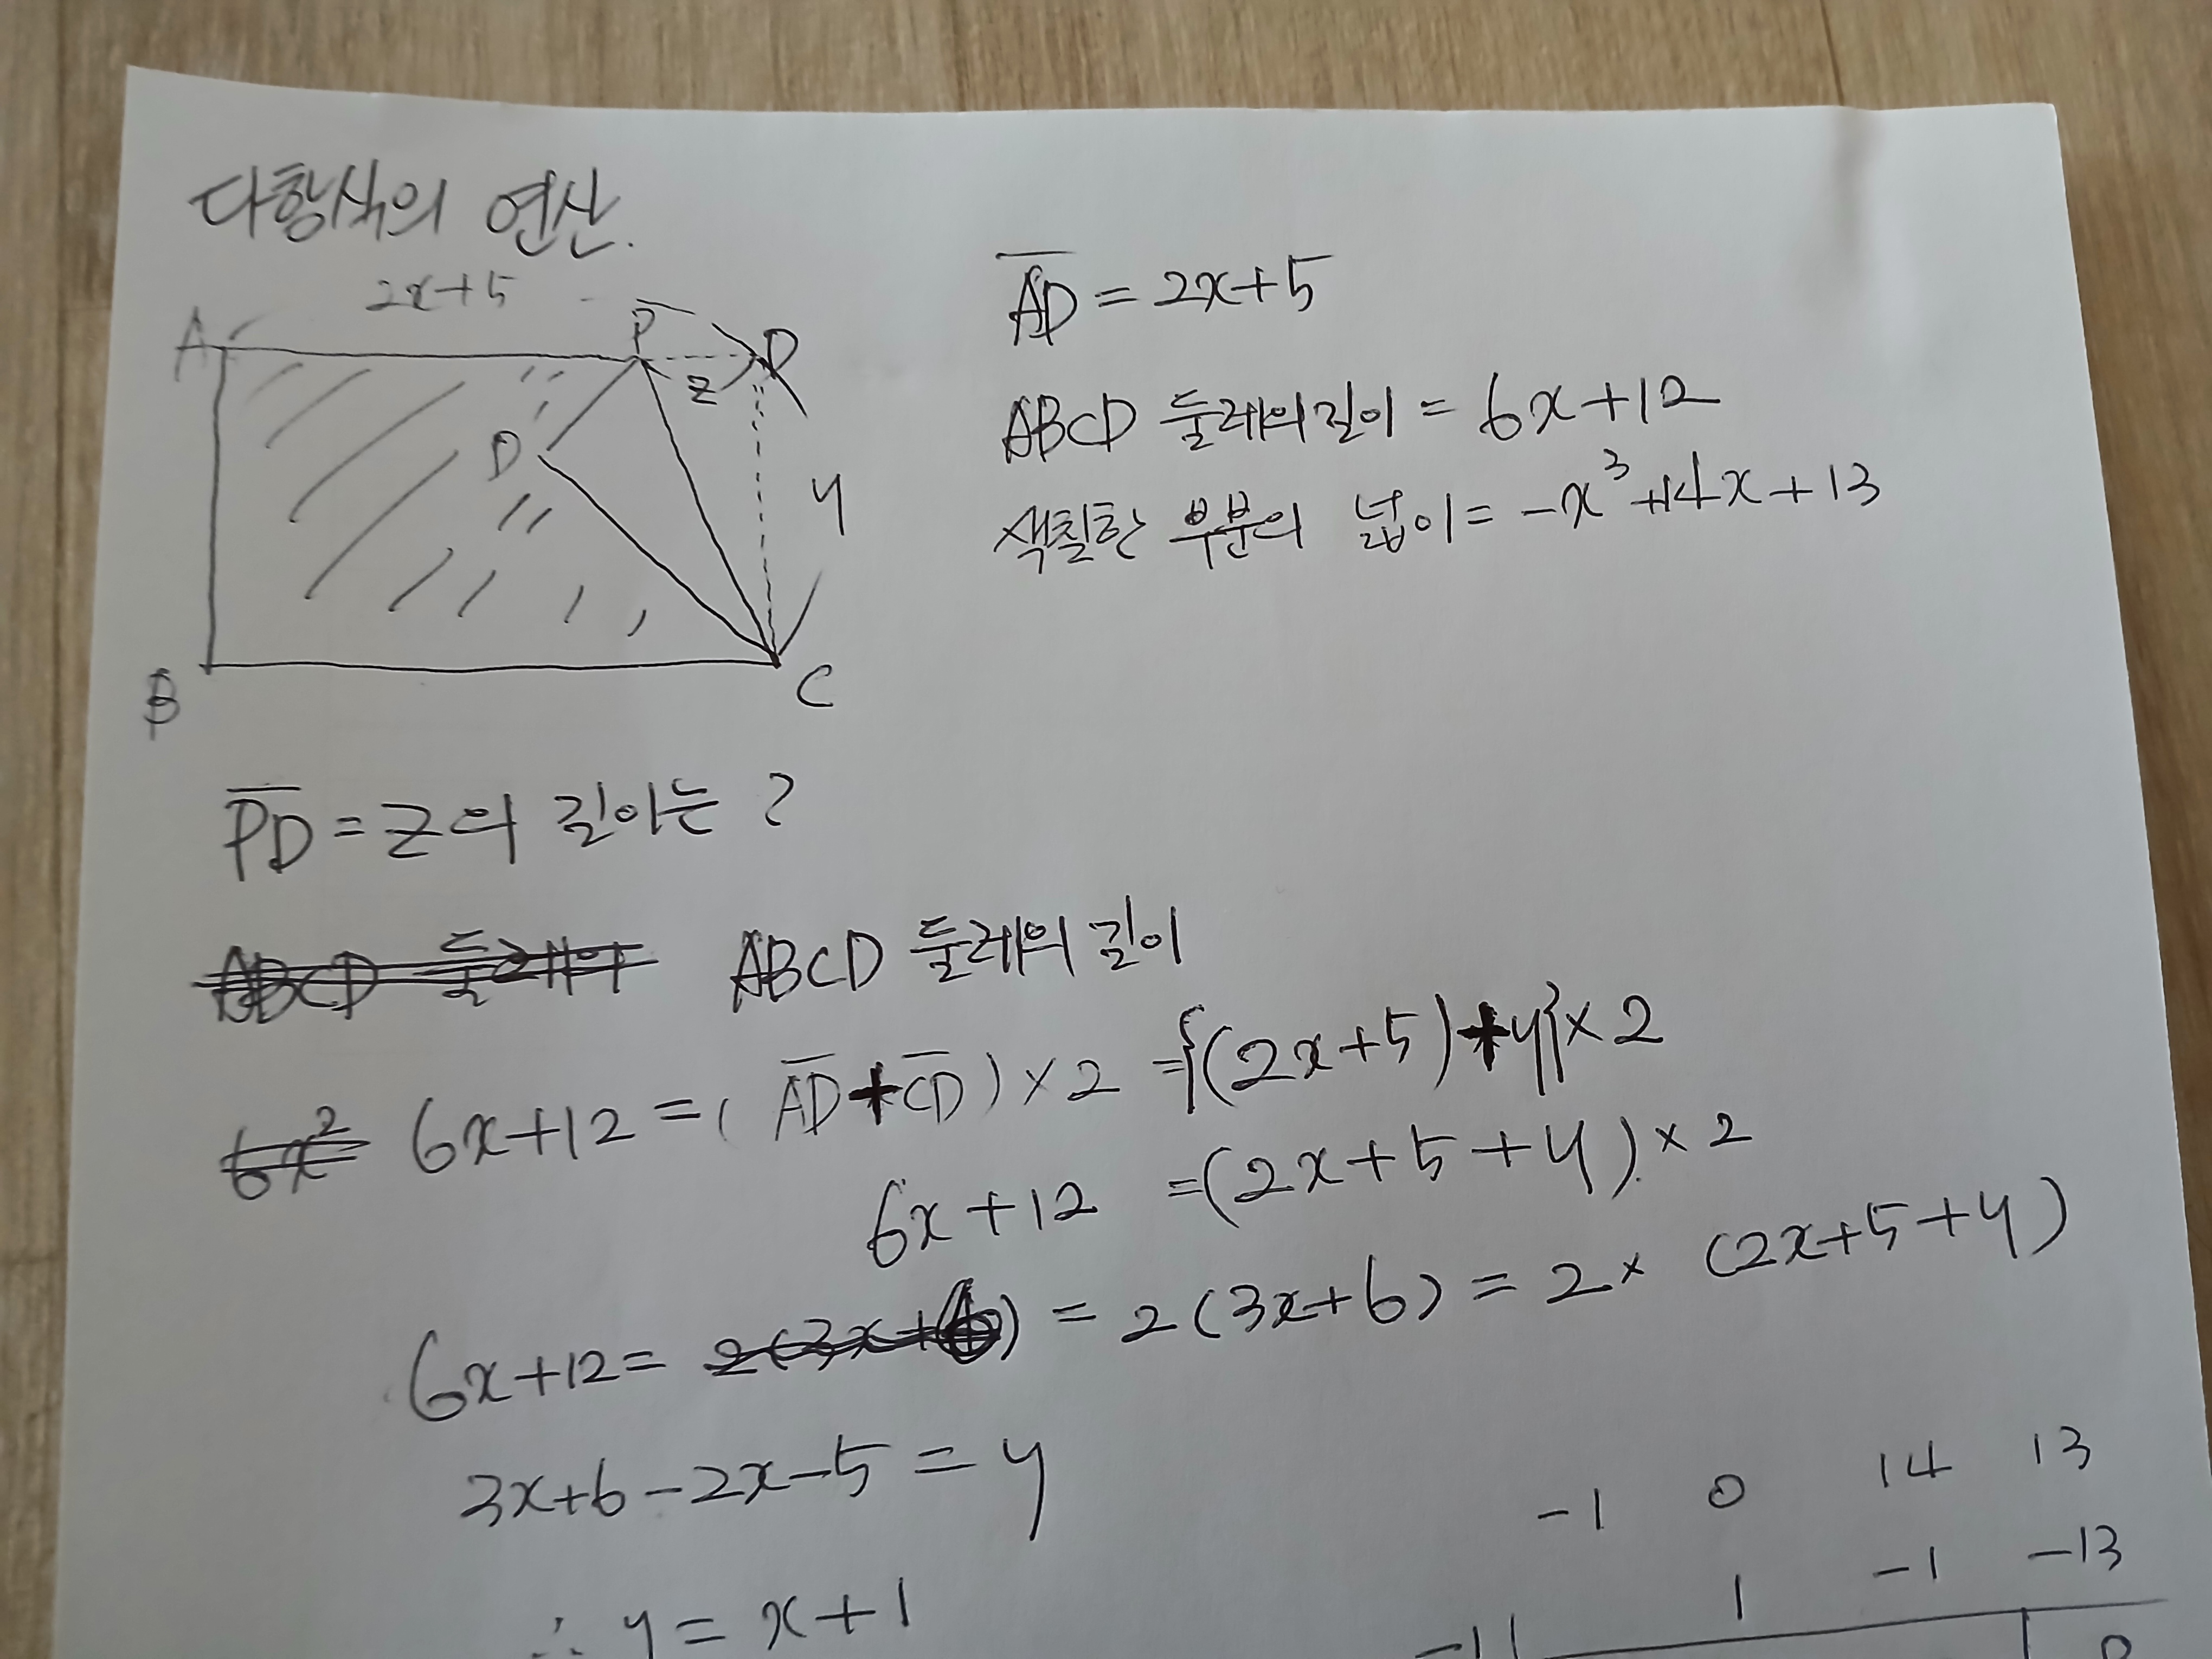 다항식의 연산.
2x+5
A P D
z
D
y
B C
AD = 2x+5
ABCD 둘레의길이 = 6x+12
색칠한 부분의 넓이 = -x³+14x+13
PD = z의 길이는 ?
ABCD 둘레의 길이
6x² 6x+12 = ( AD + CD ) × 2 = {(2x+5)+y}×2
6x+12 = (2x+5+y) × 2
6x+12 = 2(3x+6) = 2 × (2x+5+y)
3x+6-2x-5 = y
∴ y = x+1
-1 0 14 13
1 -1 -13
-1 0